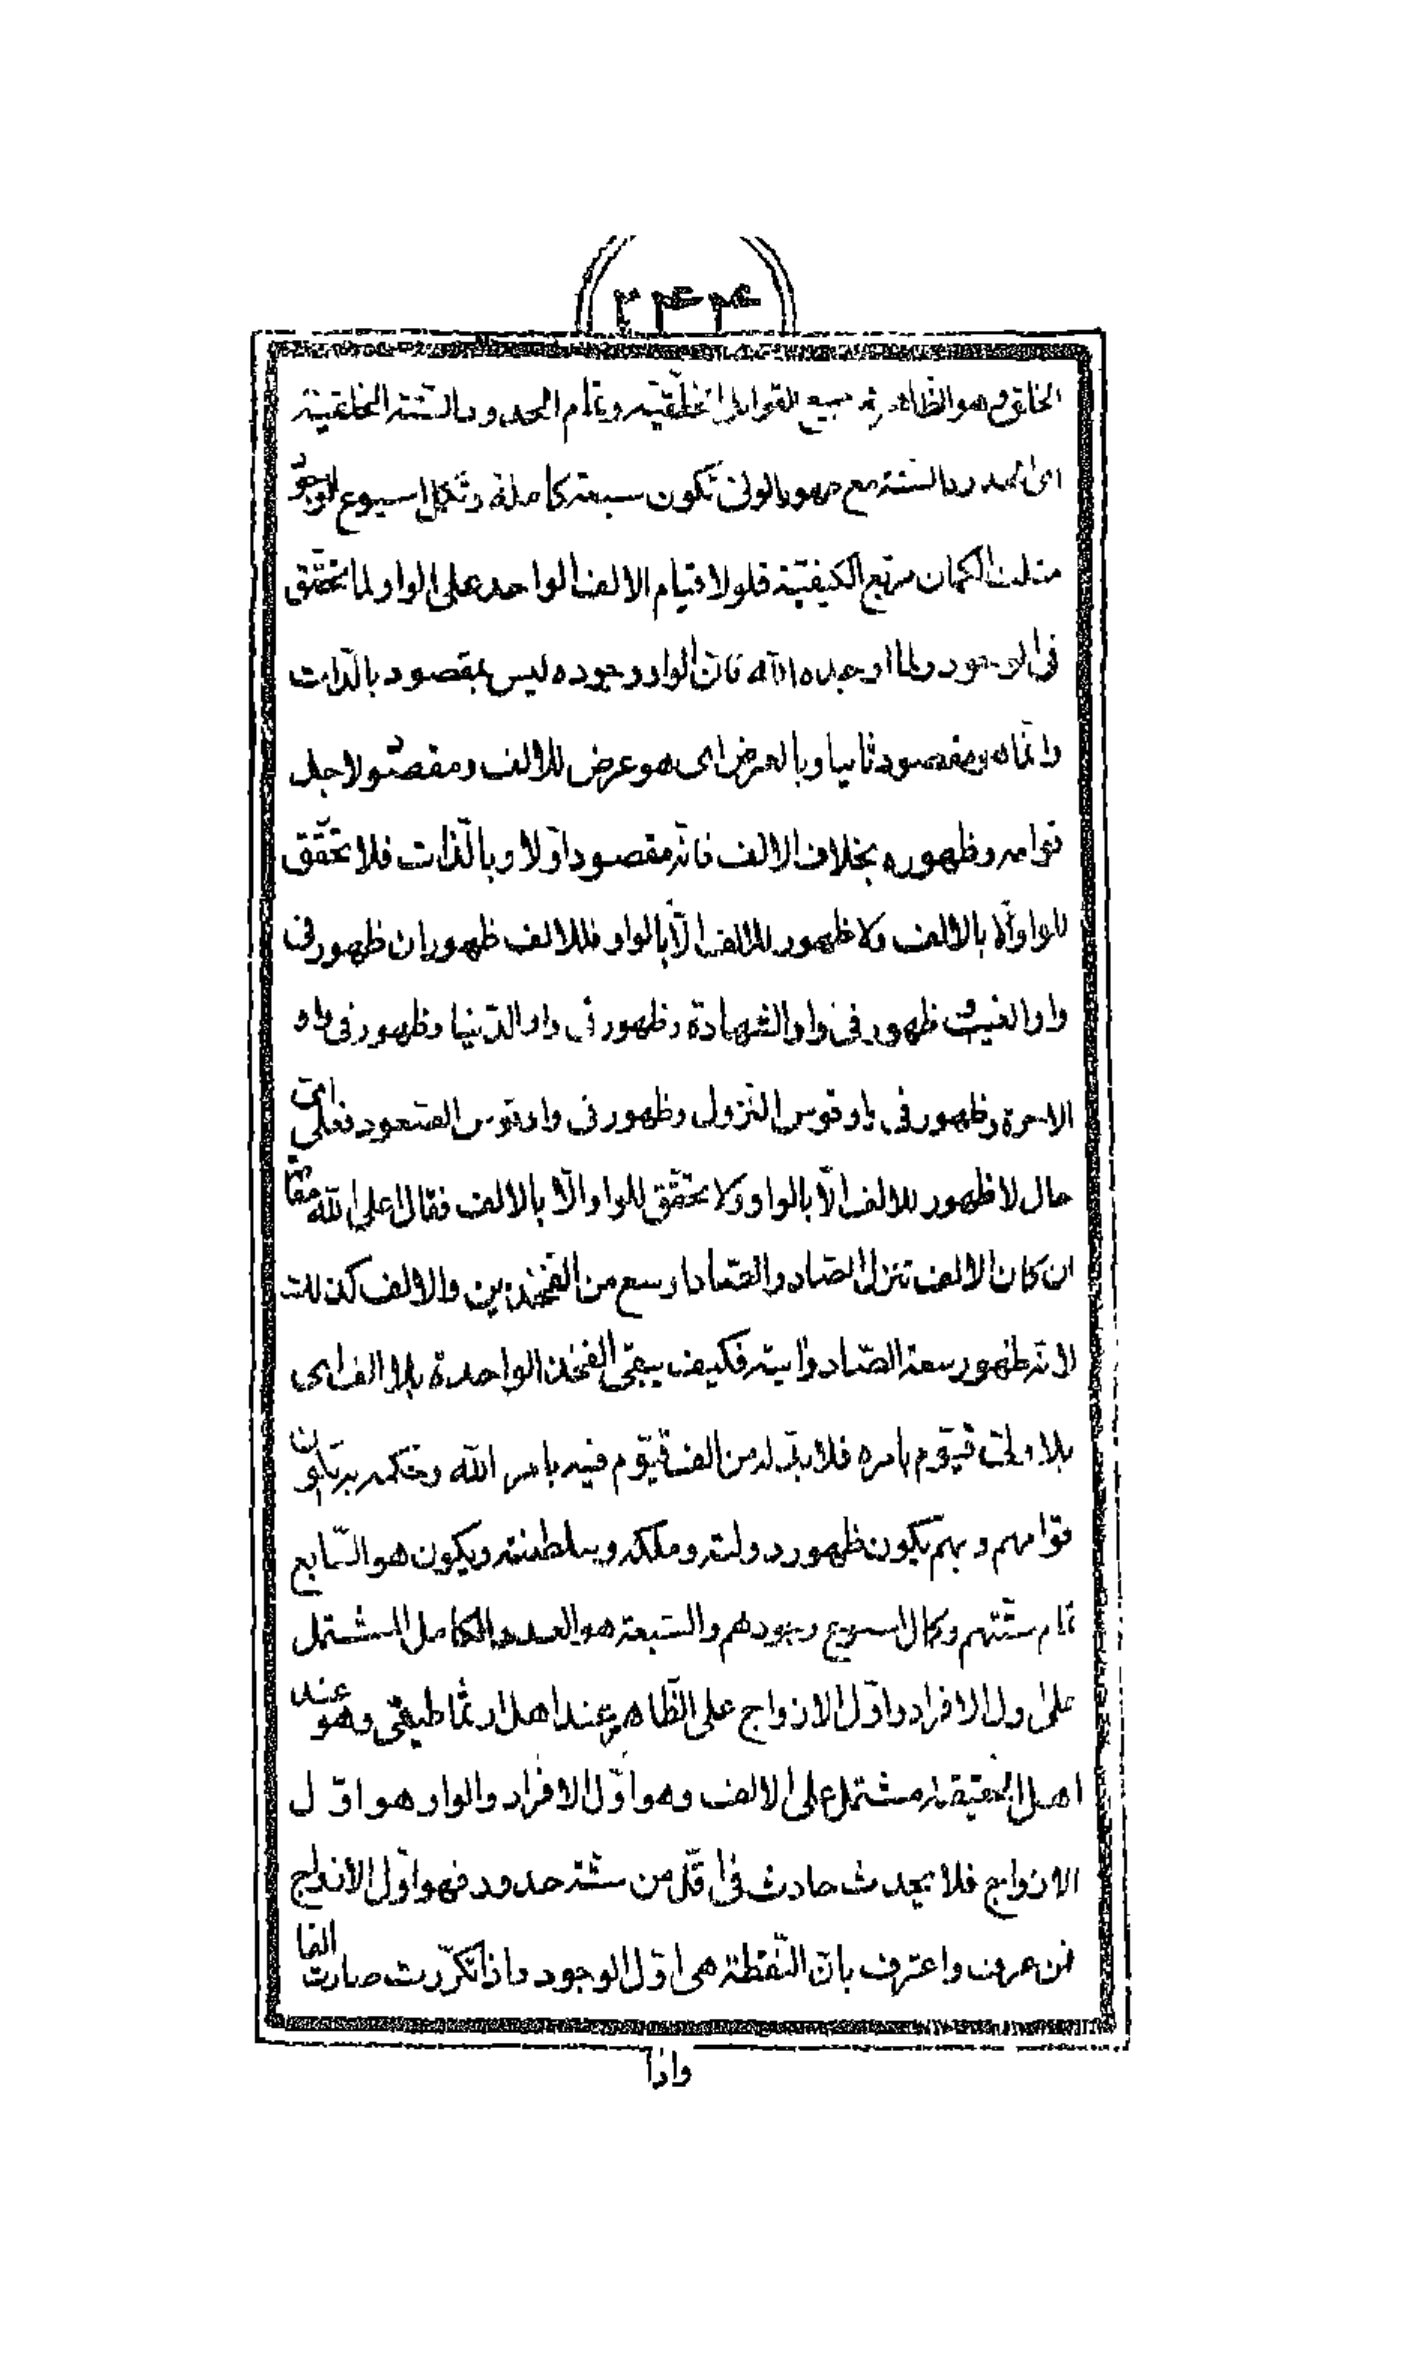 ٢٤٤
الخلق وهو الظاهر فى جميع القوابل الخلقية وتمام الحدود الستة الخلقية
اى الحدود الستة مع ظهور الولى تكون سبعة كاملة وتكمل اسبوع الوجود
مثلث الكيان مربع الكيفية فلولا قيام الالف الواحد على الواو لما تحقق
فى الوجود ولما اوجده الله فان الواو وجوده ليس بمقصود بالذات
وانما هو مقصود ثانيا وبالعرض اى هو عرض للالف ومقصود لاجل
قوامه وظهوره بخلاف الالف فانه مقصود اولا وبالذات فلا تحقق
للواو الا بالالف ولا ظهور للالف الا بالواو فللالف ظهوران ظهور فى
واو الغيب وظهور فى واو الشهادة وظهور فى واو الدنيا وظهور فى واو
الاخرة وظهور فى واو قوس النزول وظهور فى واو قوس الصعود فعلى اى
حال لا ظهور للالف الا بالواو ولا تحقق للواو الا بالالف فقال اعلى الله مقامه
ان كان الالف تنزل الصاد والصاد اوسع من الفخذين والالف كذلك
لانه ظهور سعة الصاد وابيته فكيف يبقى الفخذ الواحدة بلا الف اى
بلا ولى قيوم بامره فلا بد له من الف قيوم فيه بامر الله وحكمه به يكون
قوامهم وبهم يكون ظهور دولته وملكه وسلطنته ويكون هو السابع
تمام ستتهم وكمال اسبوع وجودهم والسبعة هو العدد الكامل المشتمل
على اول الافراد واول الازواج على الظاهر عند اهل ارثماطيقى وهو عند
اهل الحقيقة مشتمل على الالف وهو اول الافراد والواو هو اول
الازواج فلا يحدث حادث فى اقل من ستة حدود فهو اول الازواج
فمن عرف واعترف بان النقطة هى اول الوجود واذا تكررت صارت الفا
واذا